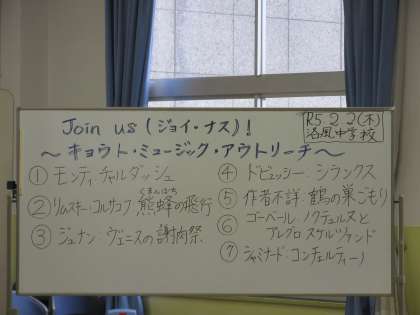 Join us (ジョイ・ナス)!
R5.2.2(木)
洛風中学校
～キョウト・ミュージック・アウトリーチ～
① モンティ:チャルダッシュ
② リムスキー=コルサコフ:熊蜂の飛行
くまんばち
③ ジュナン:ヴェニスの謝肉祭
④ ドビュッシー:シランクス
⑤ 作者不詳:鶴の巣ごもり
⑥ ゴーベール:ノクテュルヌと
アレグロ・スケルツァンド
⑦ シャミナード:コンチェルティーノ